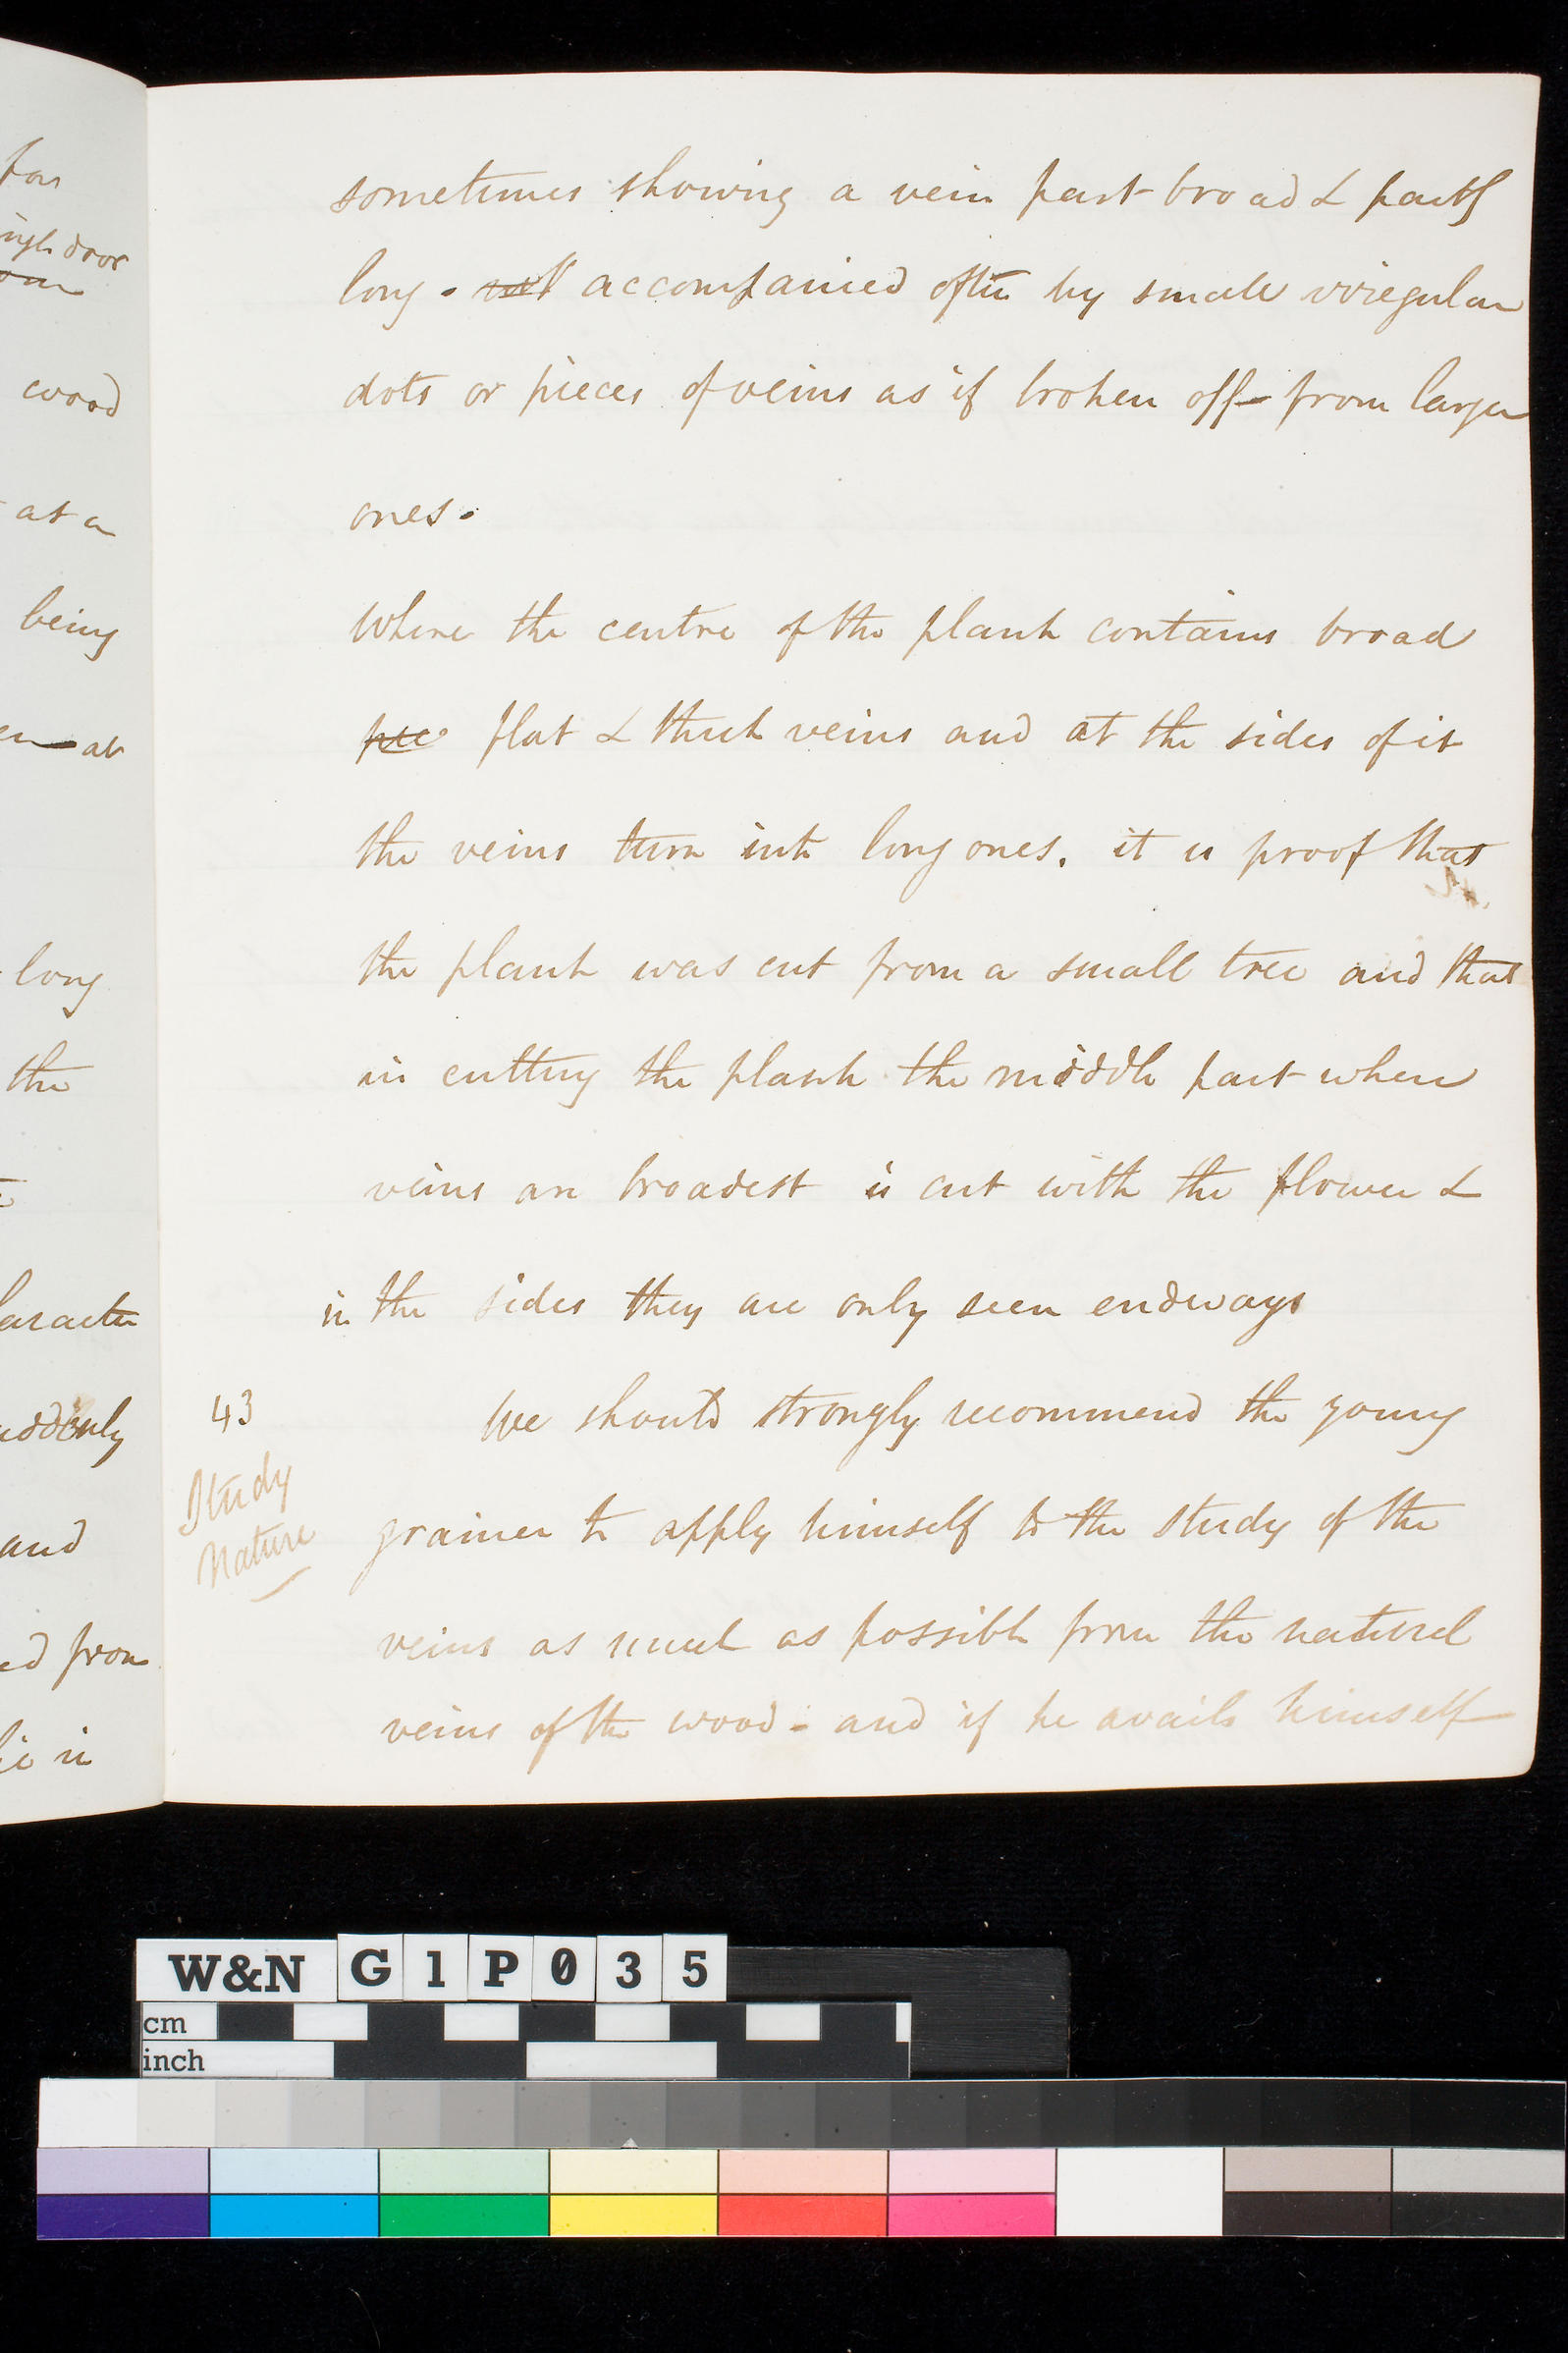 for
ugh door
wood
at a
being
at
long
the
aracter
uddenly
and
ed from
in
sometimes showing a vein part broad & partly
long. accompanied often by small irregular
dots or pieces of veins as if broken off from larger
ones.
Where the centre of the plank contains broad
flat & thick veins and at the sides of it
the veins turn into long ones, it is proof that
the plank was cut from a small tree and that
in cutting the plank the middle part where
veins are broadest is cut with the flower &
in the sides they are only seen endways
43 We should strongly recommend the young
Study
Nature
grainer to apply himself to the study of the
veins as much as possible from the natural
veins of the wood - and if he avails himself
W&N G1P035
cm
inch